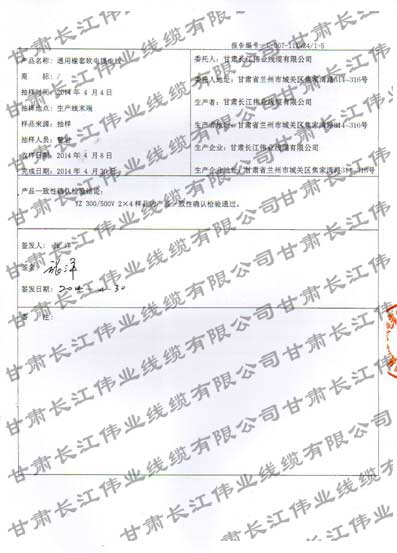 报告编号:
产品名称: 通用橡套软电缆电线
商 标: /
抽样时间: 2014 年 4 月 4 日
抽样地点: 生产线末端
样品来源: 抽样
抽样人员:
收样日期: 2014 年 4 月 8 日
完成日期: 2014 年 4 月 30 日
委托人: 甘肃长江伟业线缆有限公司
委托人地址: 甘肃省兰州市城关区焦家湾路314-316号
生产者: 甘肃长江伟业线缆有限公司
生产者地址: 甘肃省兰州市城关区焦家湾路314-316号
生产企业: 甘肃长江伟业线缆有限公司
生产企业地址: 甘肃省兰州市城关区焦家湾路314-316号
产品一致性确认检验结论:
YZ 300/500V 2×4 样品的产品一致性确认检验通过。
签发人:
签名:
签发日期:
备 注:
甘肃长江伟业线缆有限公司甘肃长江伟业线缆有限公司
甘肃长江伟业线缆有限公司甘肃长江伟业线缆有限公司
甘肃长江伟业线缆有限公司甘肃长江伟业线缆有限公司